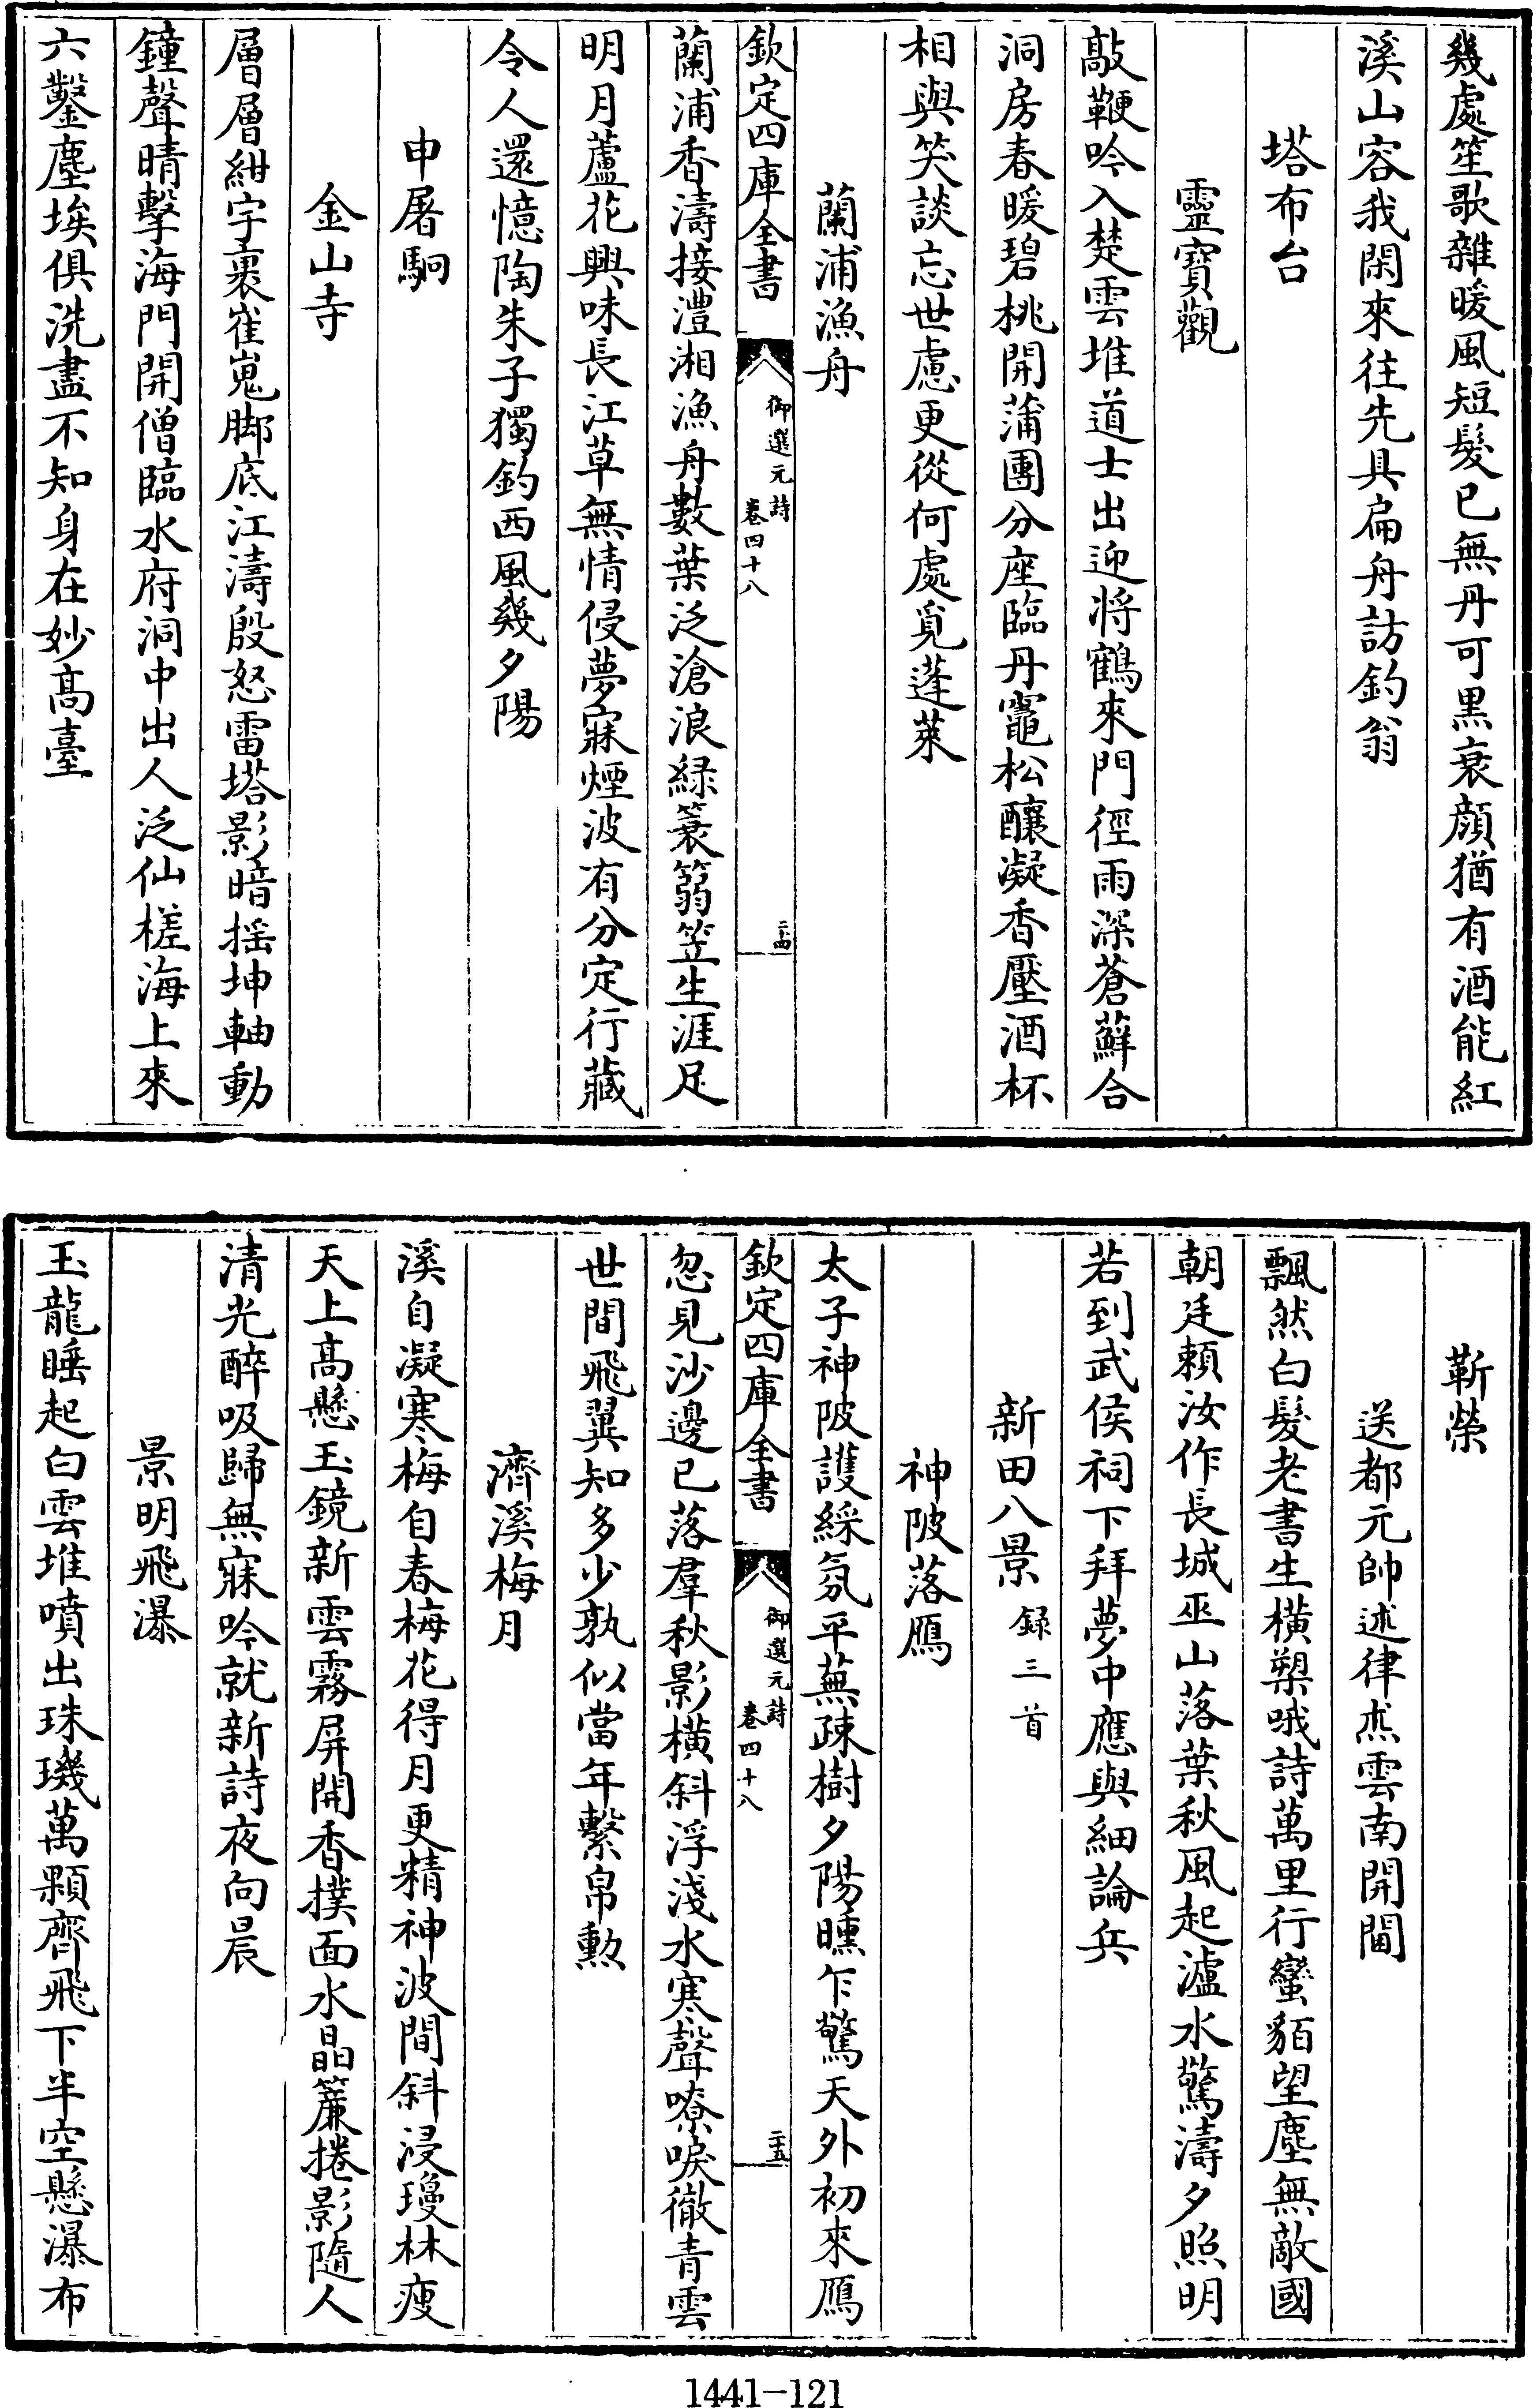 幾處笙歌雜暖風短髮已無丹可黑衰顔猶有酒能紅
溪山容我閑來往先具扁舟訪釣翁
塔布台
靈寶觀
敲鞭吟入楚雲堆道士出迎將鶴來門徑雨深蒼蘚合
洞房春暖碧桃開蒲團分座臨丹竈松釀凝香壓酒杯
相與笑談忘世慮更從何處覓蓬萊
蘭浦漁舟
欽定四庫全書
御選元詩
卷四十八
二十四
蘭浦香濤接澧湘漁舟數葉泛滄浪緑簑篛笠生涯足
明月蘆花興味長江草無情侵夢寐煙波有分定行藏
令人還憶陶朱子獨釣西風幾夕陽
申屠駉
金山寺
層層紺宇裹崔嵬脚底江濤殷怒雷塔影暗摇坤軸動
鐘聲晴擊海門開僧臨水府洞中出人泛仙槎海上來
六鑿塵埃俱洗盡不知身在妙髙臺
靳榮
送都元帥述律杰雲南開閫
飄然白髮老書生横槊哦詩萬里行蠻貊望塵無敵國
朝廷賴汝作長城巫山落葉秋風起瀘水驚濤夕照明
若到武侯祠下拜夢中應與細論兵
新田八景 録三首
神陂落鴈
太子神陂護綵氛平蕪疎樹夕陽曛乍驚天外初來鴈
欽定四庫全書
御選元詩
卷四十八
二十五
忽見沙邊已落羣秋影横斜浮淺水寒聲嘹唳徹青雲
世間飛翼知多少孰似當年繫帛勳
濟溪梅月
溪自凝寒梅自春梅花得月更精神波間斜浸瓊林痩
天上髙懸玉鏡新雲霧屏開香撲面水晶簾捲影隨人
清光醉吸歸無寐吟就新詩夜向晨
景明飛瀑
玉龍睡起白雲堆噴出珠璣萬顆齊飛下半空懸瀑布
1441-121